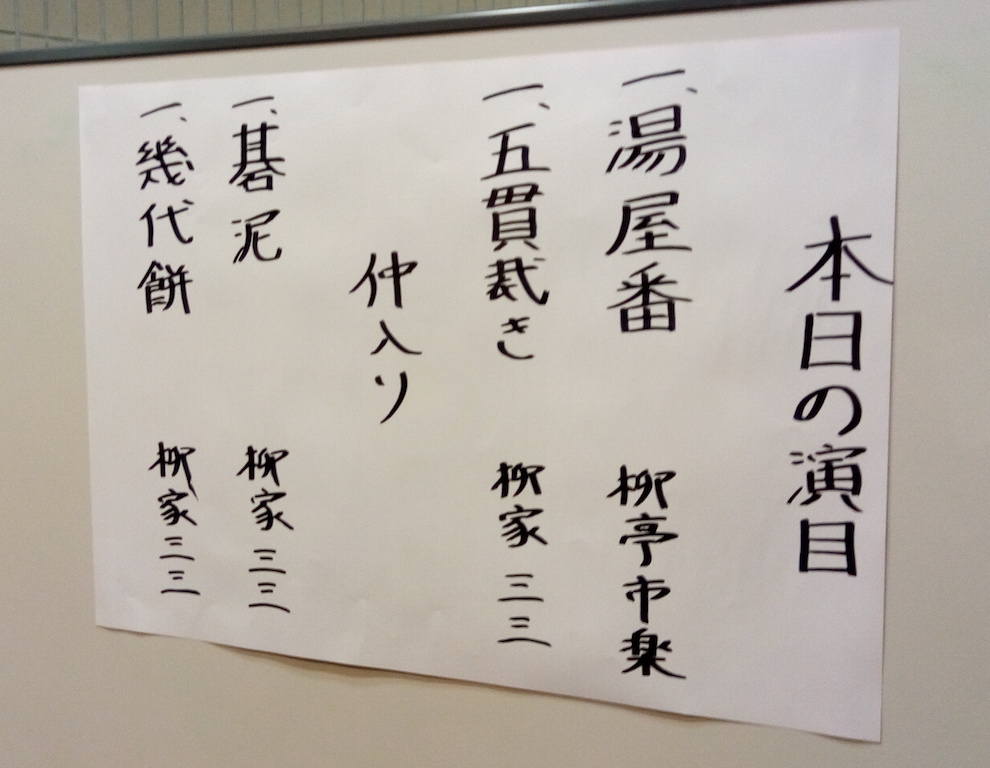 本日の演目
一、湯屋番 柳亭市楽
一、五貫裁き 柳家三三
仲入り
一、碁泥 柳家三三
一、幾代餅 柳家三三